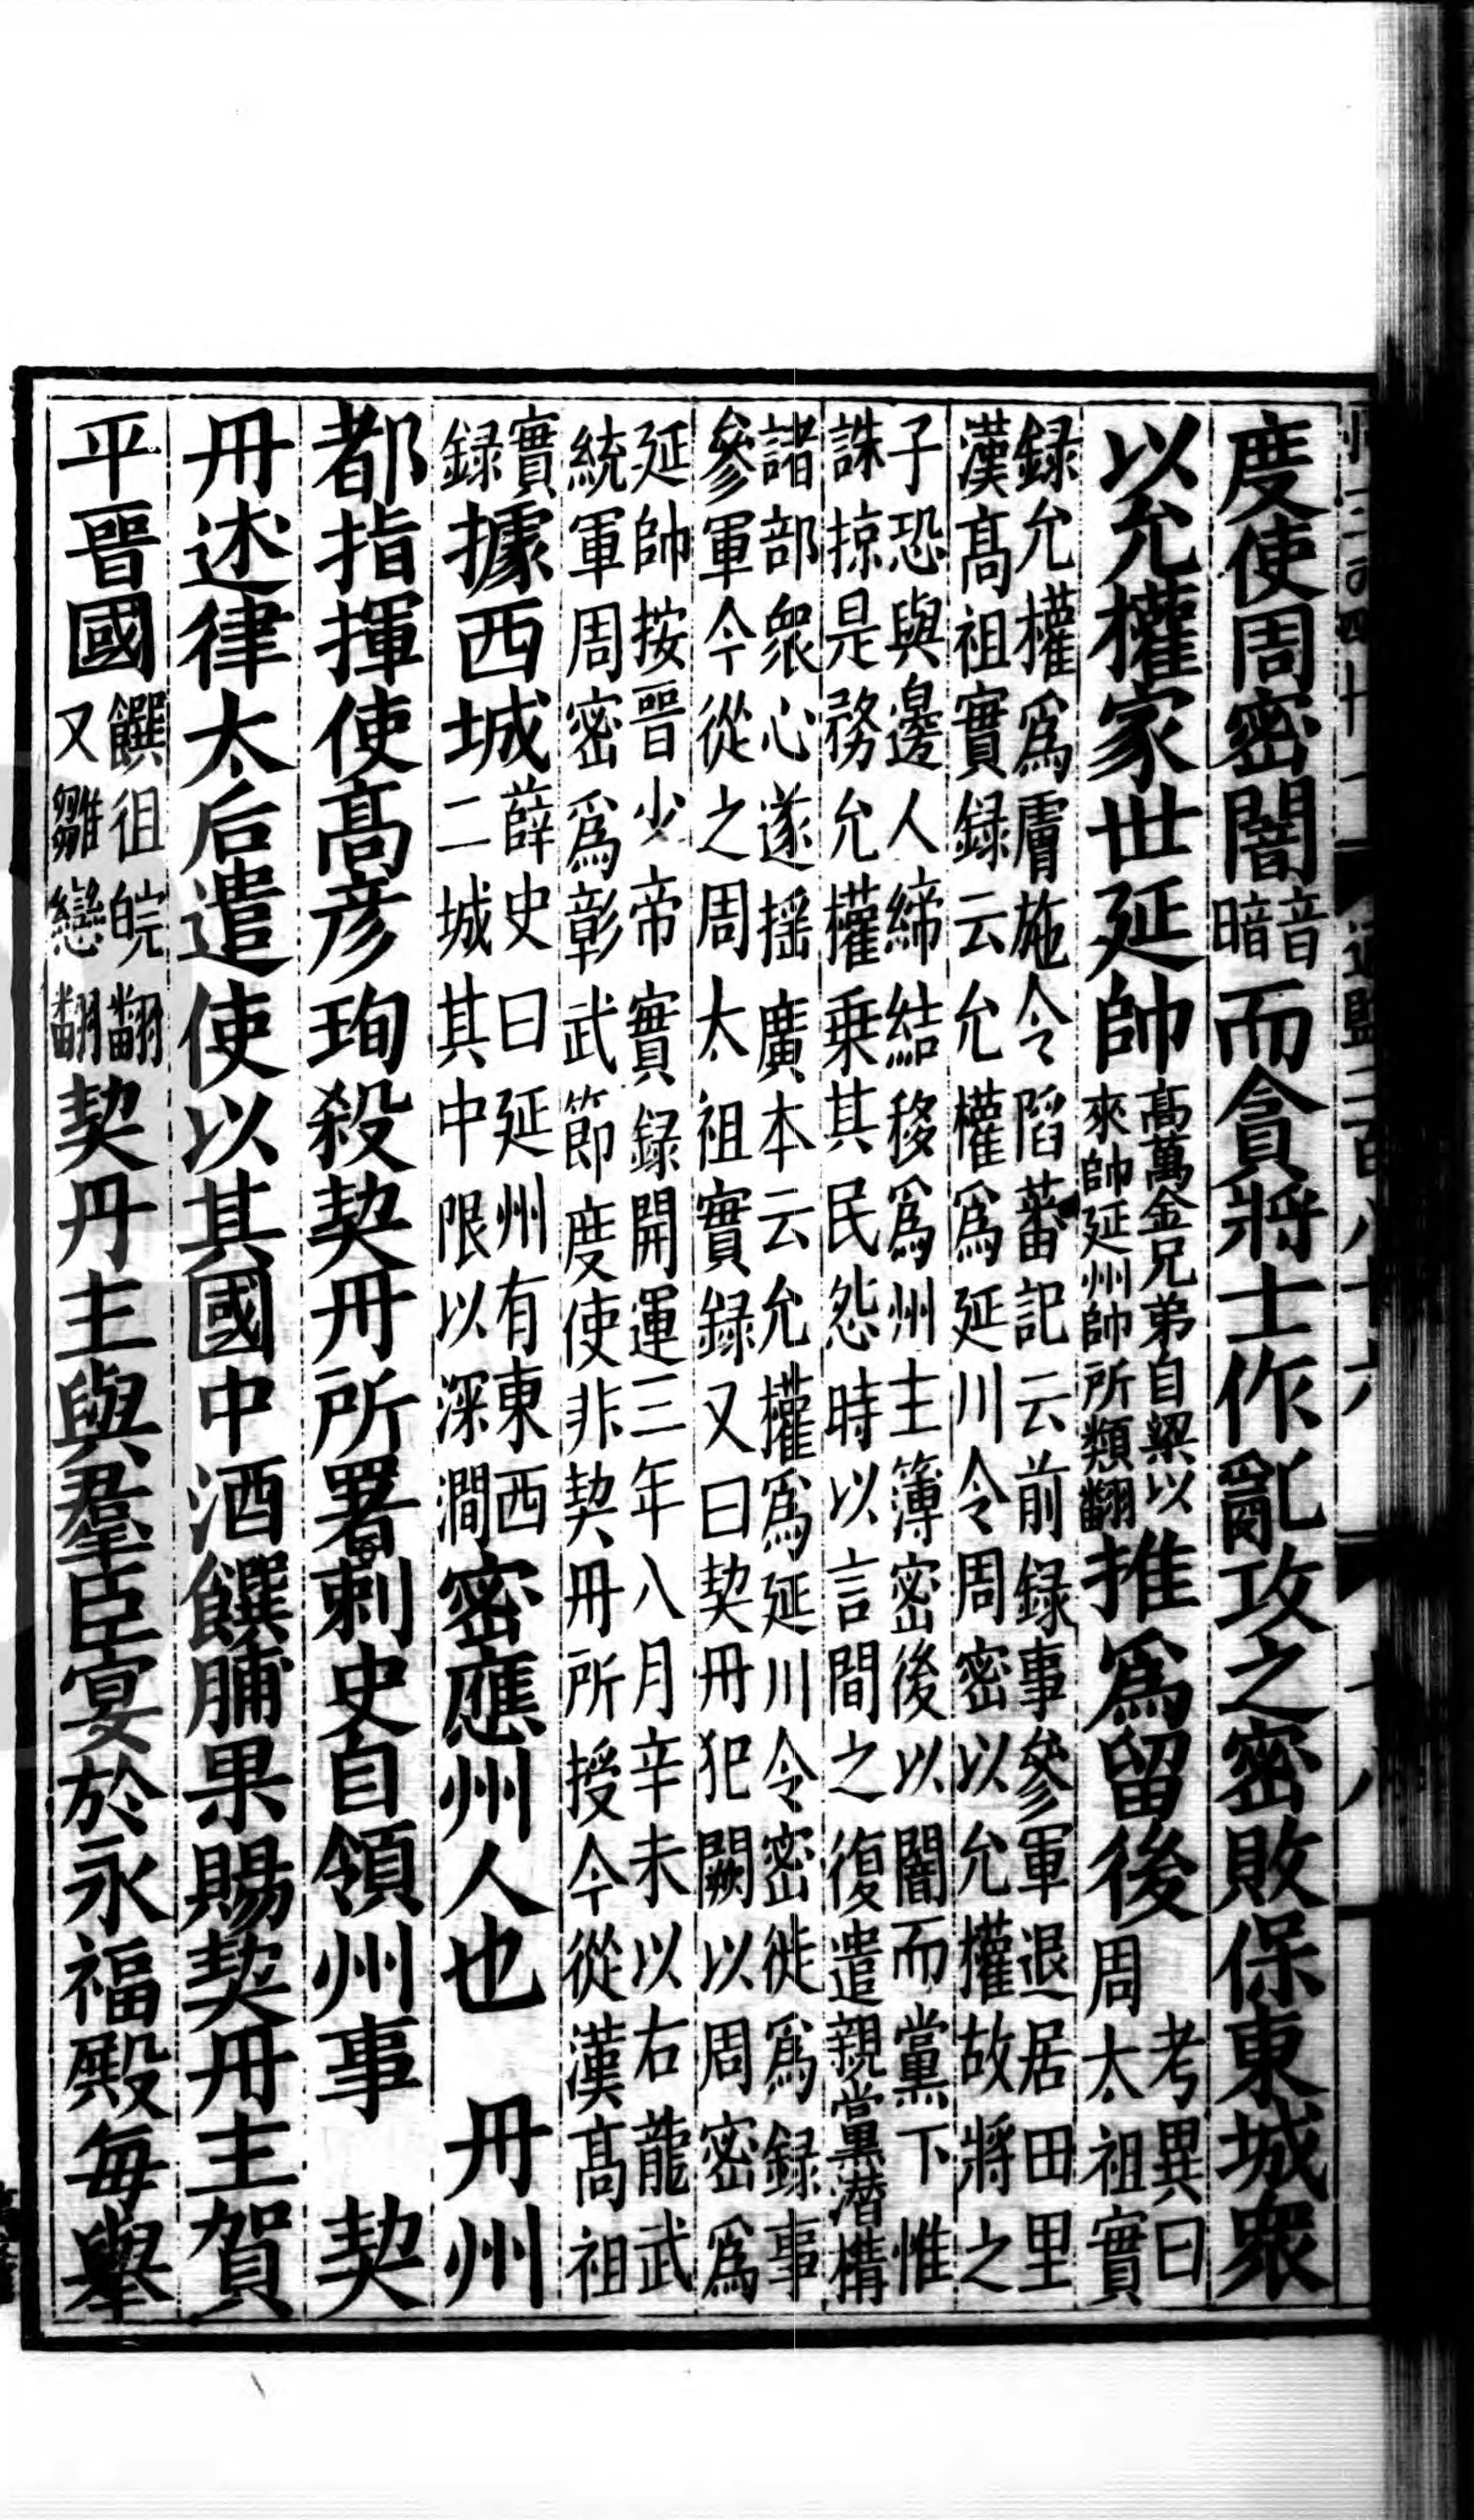 度使周密闇音暗而貪將士作亂攻之密敗保東城衆
以允權家世延帥高萬金兄弟自梁以來帥延州帥所類翻推爲留後考異曰周太祖實
録允權爲膚施令陷蕃記云前録事參軍退居田里
漢高祖實録云允權爲延川令周密以允權故將之
子恐與邊人締結移爲州主簿密後以闇而黨下惟
誅掠是務允權乗其民怨時以言間之復遣親黨潜構
諸部衆心遂揺廣本云允權爲延川令密徙爲録事
參軍今從之周太祖實録又曰契丹犯闕以周密爲
延帥按晉少帝實録開運三年八月辛未以右龍武
統軍周密爲彰武節度使非契丹所授今從漢高祖
實録據西城薛史曰延州有東西二城其中限以深澗密應州人也 丹州
都指揮使高彦珣殺契丹所署刺史自領州事 契
丹述律太后遣使以其國中酒饌脯果賜契丹主賀
平晉國饌徂皖翻又雛戀翻契丹主與羣臣宴於永福殿每舉